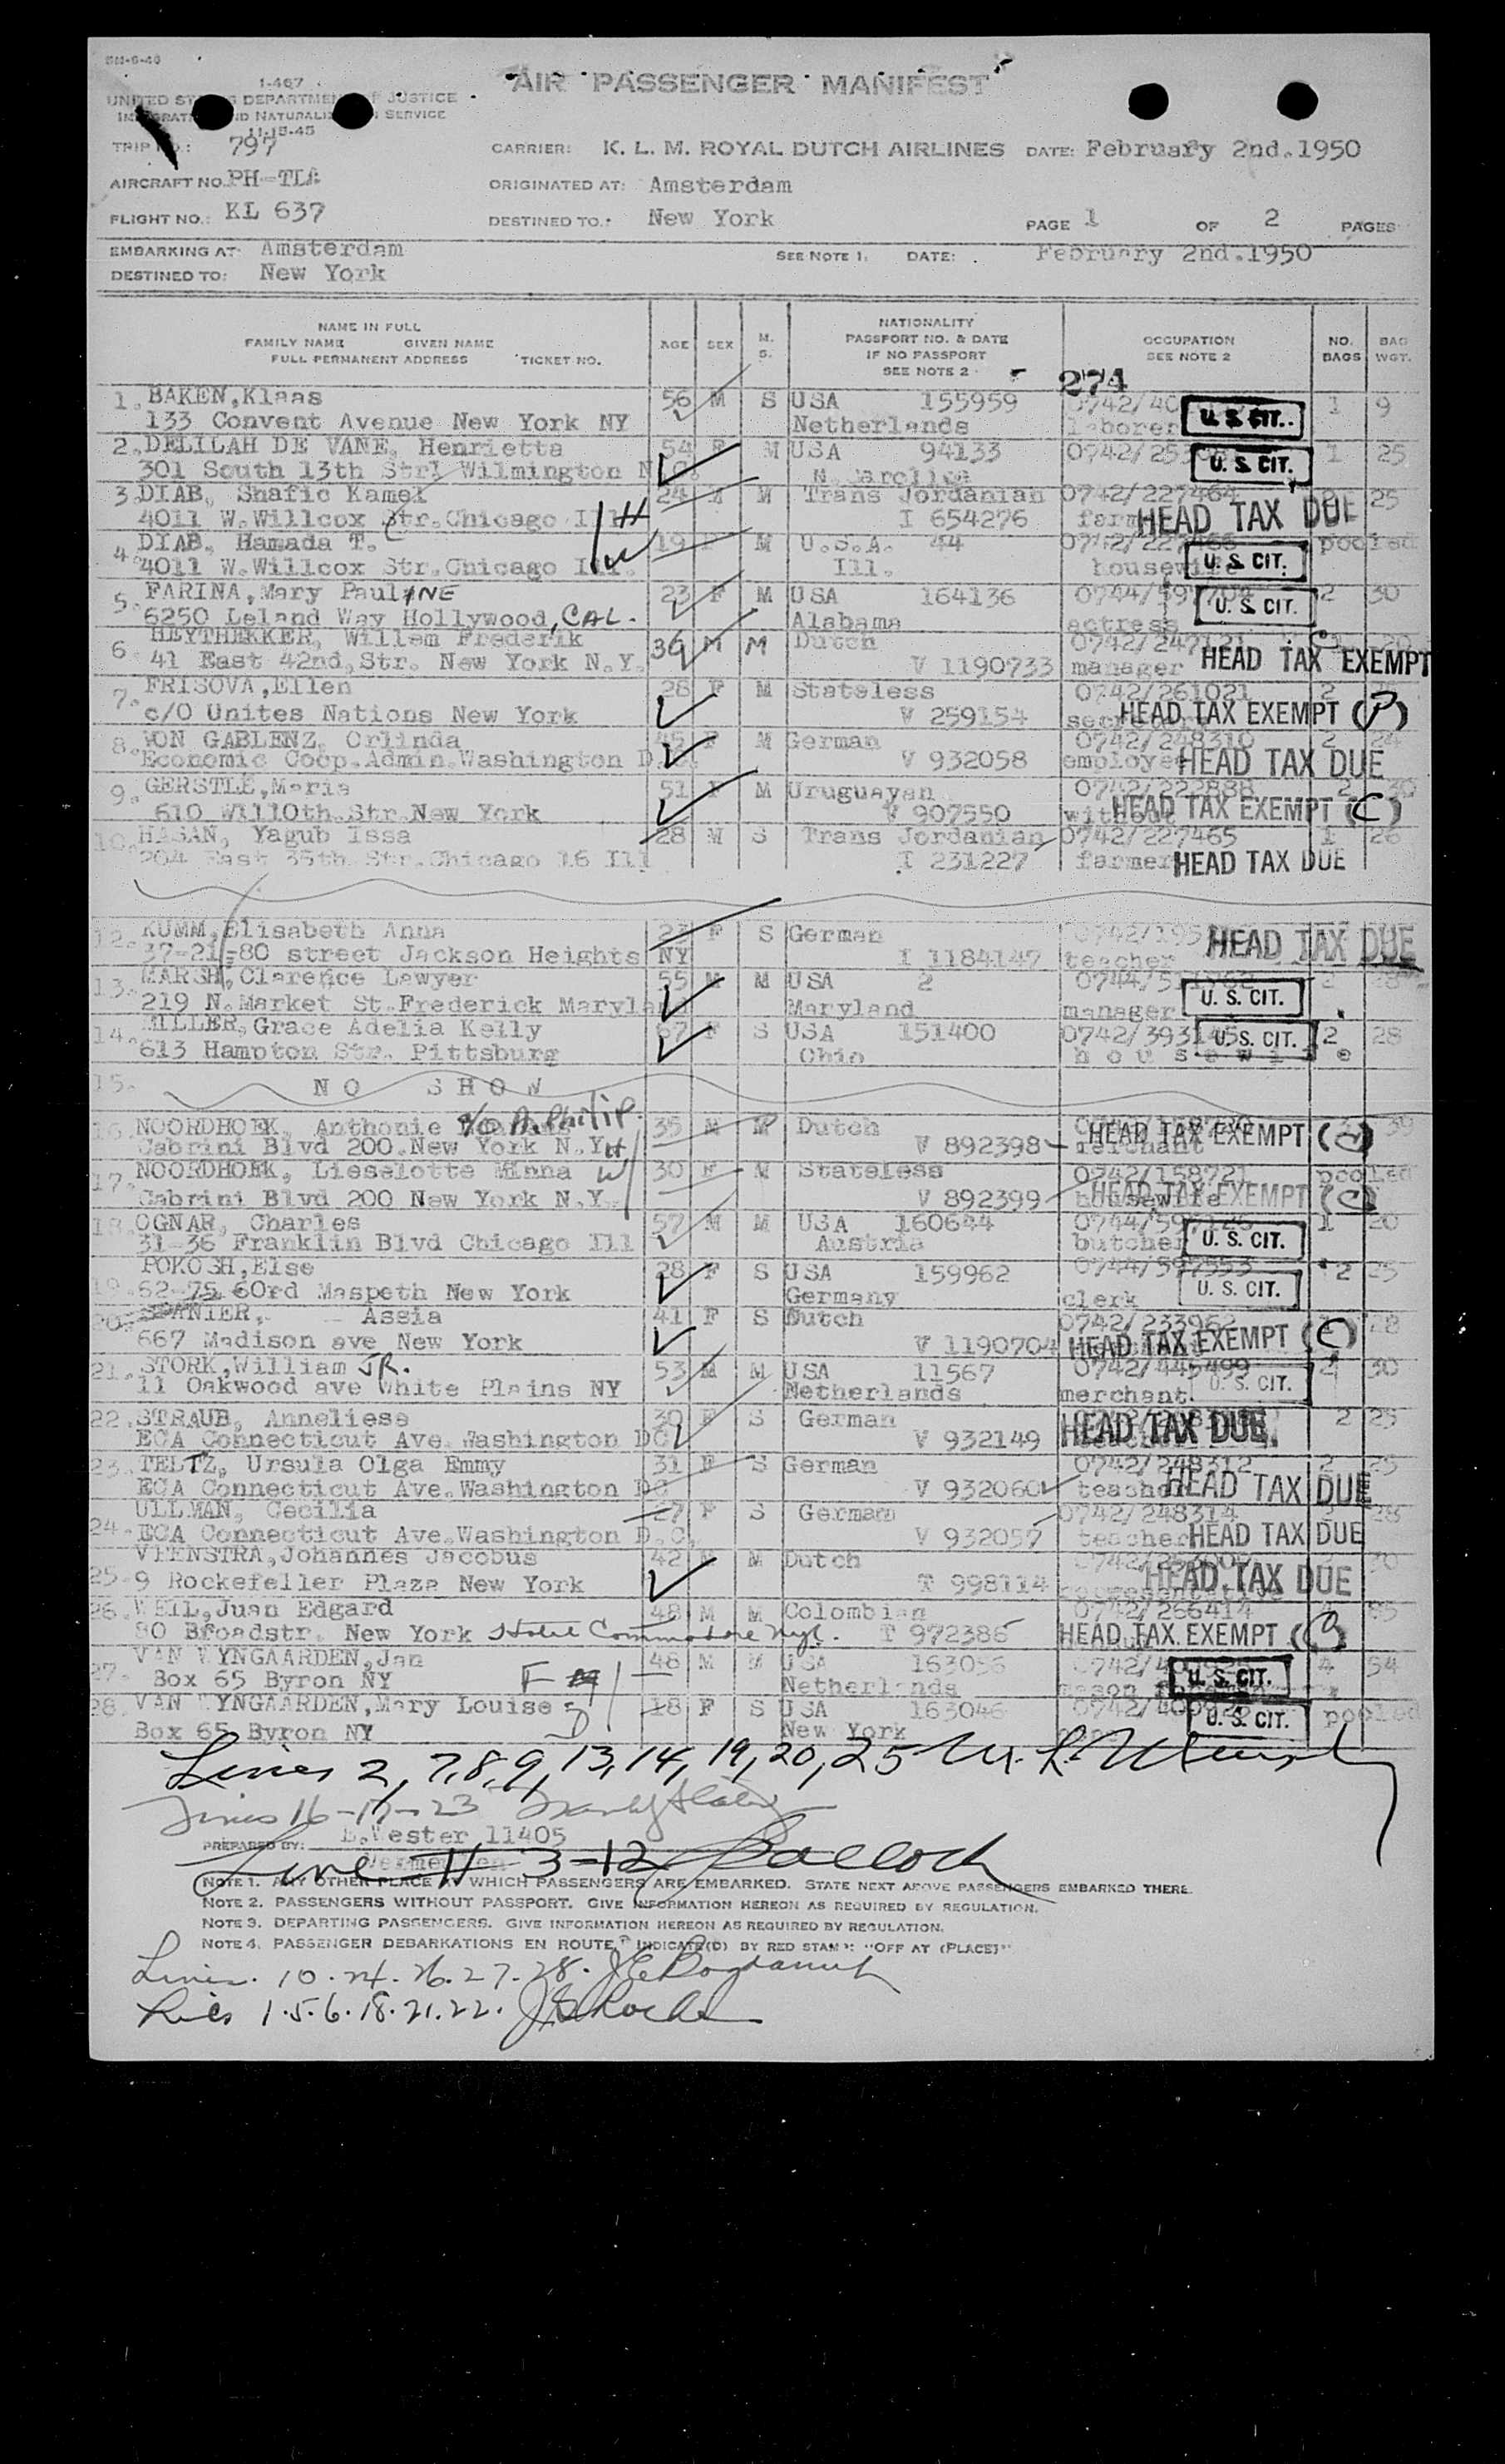 BM-6-46
I-467
UNITED ST S DEPARTMEN F JUSTICE
IM GRATI ND NATURALIZ N SERVICE
11-15-45
AIR PASSENGER MANIFEST
TRIP NO.: 797 CARRIER: K. L. M. ROYAL DUTCH AIRLINES DATE: February 2nd.1950
AIRCRAFT NO. PH-TLA ORIGINATED AT: Amsterdam
FLIGHT NO.: KL 637 DESTINED TO: New York PAGE 1 OF 2 PAGES
EMBARKING AT: Amsterdam SEE NOTE 1. DATE: February 2nd.1950
DESTINED TO: New York
NAME IN FULL
FAMILY NAME GIVEN NAME
FULL PERMANENT ADDRESS TICKET NO.
AGE SEX M. S.
NATIONALITY
PASSPORT NO. & DATE
IF NO PASSPORT
SEE NOTE 2
OCCUPATION
SEE NOTE 2
NO. BAGS
BAG WGT.
274
1. BAKEN,Klaas 56 M S USA 155959 1 9
133 Convent Avenue New York NY Netherlands laborer U. S. CIT.
2. DELILAH DE VANE, Henrietta 54 F M USA 94133 1 25
301 South 13th Str Wilmington N.C. N. Carolina U. S. CIT.
3. DIAB, Shafic Kamel 24 M M Trans Jordanian 0742/227464 25
4011 W.Willcox Str.Chicago Ill H I 654276 HEAD TAX DUE
4. DIAB, Hamada T. W 19 F M U.S.A. 44 pooled
4011 W.Willcox Str.Chicago Ill. Ill. housewife U. S. CIT.
5. FARINA,Mary PaulINE 23 F M USA 164136 2 30
6250 Leland Way Hollywood, CAL. Alabama actress U. S. CIT.
6. HEYTHEKKER, Willem Frederik 39 M M Dutch 0742/247121
41 East 42nd,Str. New York N.Y. V 1190733 manager HEAD TAX EXEMPT
7. FRISOVA,Ellen 28 F M Stateless 0742/261021 2
c/O Unites Nations New York V 259154 HEAD TAX EXEMPT (P)
8. VON GABLENZ, Orlinda 45 F M German 0742/248310 2 24
Economic Coop.Admin.Washington D.C. V 932058 employee HEAD TAX DUE
9. GERSTLE,Maria 51 F M Uruguayan 0742/222888 2 30
610 W110th.Str.New York V 907550 without HEAD TAX EXEMPT (C)
10. HASAN, Yagub Issa 28 M S Trans Jordanian 0742/227465 1 26
204 East 35th Str.Chicago 16 Ill I 231227 farmer HEAD TAX DUE
12. KUMM,Elisabeth Anna 23 F S German
37-21-80 street Jackson Heights NY I 1184147 teacher HEAD TAX DUE
13. MARSH,Clarence Lawyer 55 M M USA 2
219 N.Market St.Frederick Maryland Maryland manager U. S. CIT.
14. MILLER,Grace Adelia Kelly 67 F S USA 151400 0742/393145 2 28
613 Hampton Str. Pittsburg Ohio housewife U. S. CIT.
15. NO SHOW
16. NOORDHOEK, Anthonie 35 M M Dutch 39
Cabrini Blvd 200.New York N.Y. H V 892398 merchant HEAD TAX EXEMPT (C)
17. NOORDHOEK, Lieselotte Minna W 30 F M Stateless 0742/158721 pooled
Cabrini Blvd 200 New York N.Y. V 892399 housewife HEAD TAX EXEMPT (C)
18. OGNAR, Charles 57 M M USA 160644 1 20
31-36 Franklin Blvd Chicago Ill Austria butcher U. S. CIT.
19. POKOSH,Else 28 F S USA 159962 0744/597553 2 25
62-75 60rd Maspeth New York Germany clerk U. S. CIT.
20. SPANIER, Assia 41 F S Dutch 0742/233962 28
667 Madison ave New York V 1190704 HEAD TAX EXEMPT (C)
21. STORK,William JR. 53 M M USA 11567 0742/445499 30
11 Oakwood ave White Plains NY Netherlands merchant U. S. CIT.
22. STRAUB, Anneliese 30 F S German 2 25
ECA Connecticut Ave.Washington DC V 932149 HEAD TAX DUE
23. TELTZ, Ursula Olga Emmy 31 F S German 0742/248312 2 25
ECA Connecticut Ave.Washington DC V 932060 teacher HEAD TAX DUE
24. ULLMAN, Cecilia 27 F S German 0742/248314 28
ECA Connecticut Ave.Washington D.C. V 932057 teacher HEAD TAX DUE
25. VEENSTRA,Johannes Jacobus 42 M M Dutch
9 Rockefeller Plaza New York T 998114 HEAD TAX DUE
26. WEIL,Juan Edgard 48 M M Colombian 0742/266414
80 Broadstr. New York Hotel Commodore nyc. T 972386 HEAD TAX EXEMPT (C)
27. VAN WYNGAARDEN,Jan 48 M M USA 163056 4 54
Box 65 Byron NY F Netherlands U. S. CIT.
28. VAN WYNGAARDEN,Mary Louise D 18 F S USA 163046 pooled
Box 65 Byron NY New York U. S. CIT.
Lines 2, 7, 8, 9, 13, 14, 19, 20, 25
Lines 16-17-23
PREPARED BY: Wester 11405
Line 3-12
NOTE 1. ANY OTHER PLACE AT WHICH PASSENGERS ARE EMBARKED. STATE NEXT ABOVE PASSENGERS EMBARKED THERE.
NOTE 2. PASSENGERS WITHOUT PASSPORT. GIVE INFORMATION HEREON AS REQUIRED BY REGULATION.
NOTE 3. DEPARTING PASSENGERS. GIVE INFORMATION HEREON AS REQUIRED BY REGULATION.
NOTE 4. PASSENGER DEBARKATIONS EN ROUTE, INDICATE(D) BY RED STAMP: "OFF AT (PLACE)"
Lines. 10. 24. 26. 27. 28.
Lines 1. 5. 6. 18. 21. 22.